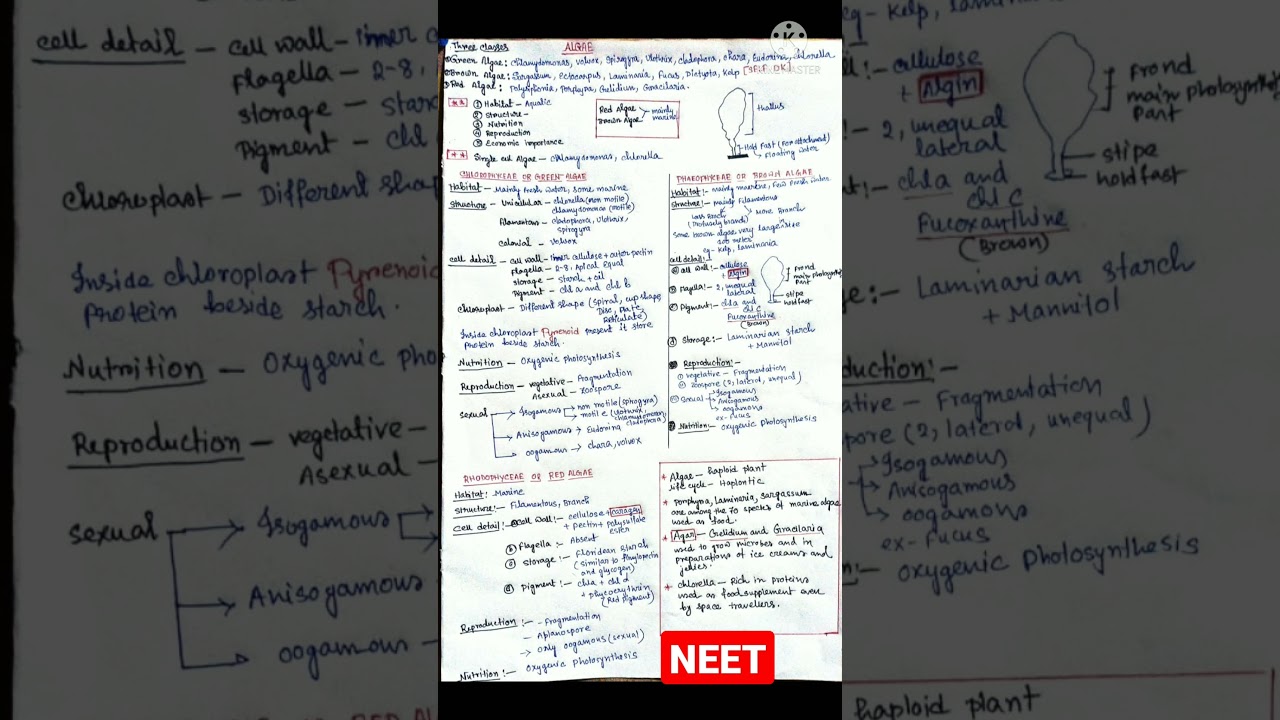 Three classes
ALGAE
Green Algae: chlamydomonas, volvox, spirogyra, ulothrix, chara, Eudorina, chlorella
Brown Algae: Sargassum, Ectocarpus, Laminaria, Fucus, Dictyota, Kelp
Red Algae: Polysiphonia, Porphyra, Gelidium, Gracilaria.
** ① Habitat - Aquatic
② Structure -
③ Nutrition
④ Reproduction
⑤ Economic importance
Red Algae
Brown Algae
mainly marine
thallus
Hold Fast (For attachment)
Floating water
** Single cell Algae - chlamydomonas, chlorella
CHLOROPHYCEAE OR GREEN ALGAE
Habitat - Mainly fresh water, some marine
Structure - Unicellular - chlorella (non motile)
chlamydomonas (motile)
filamentous - cladophora, ulothrix,
spirogyra
colonial - volvox
cell detail - cell wall - inner cellulose + outer pectin
Flagella - 2-8, Apical Equal
storage - starch + oil
Pigment - chl a and chl b
chloroplast - Different shape (spiral, cup shape
Disc, Plate,
Reticulate)
Inside chloroplast Pyrenoid present it store
Protein beside starch.
Nutrition - Oxygenic photosynthesis
Reproduction - vegetative - Fragmentation
Asexual - zoospore
sexual
Isogamous
non motile
motile (ulothrix,
chlamydomonas,
cladophora)
Anisogamous → Eudorina
oogamous → chara, volvox
PHAEOPHYCEAE OR BROWN ALGAE
Habitat:- mainly marine, Few fresh water.
Structure:- mainly Filamentous
More Branch
Some brown algae very large size
eg- Kelp, Laminaria
cell detail:-
cell wall:- cellulose
+ Algin
Flagella:- 2, unequal
lateral
Pigment:- chl a and
chl c
Fucoxanthine
(Brown)
frond
main photosynthetic
part
stipe
holdfast
Storage:- Laminarian starch
+ Mannitol
Reproduction:-
① vegetative - Fragmentation
② zoospore (2, lateral, unequal)
Sexual
Isogamous
Anisogamous
oogamous
ex- Fucus
Nutrition:- oxygenic photosynthesis
RHODOPHYCEAE OR RED ALGAE
Habitat: Marine
Structure:- Filamentous, Branch
Cell detail:- cell wall:- cellulose +
+ pectin + polysulfate
ester
Flagella:- Absent
Storage:- Floridean starch
(similar to Amylopectin
and glycogen)
Pigment:- chl a + chl d
+ phycoerythrin
(Red pigment)
Reproduction:- - Fragmentation
- Aplanospore
- only oogamous (sexual)
Nutrition:- oxygenic photosynthesis
* Algae - haploid plant
life cycle - Haplontic
* Porphyra, Laminaria, Sargassum
are among the 70 species of marine algae
used as food.
* Agar - Gelidium and Gracilaria
used to grow microbes and in
preparations of ice creams and
jellies.
* chlorella - Rich in proteins
used as food supplement even
by space travellers.
NEET